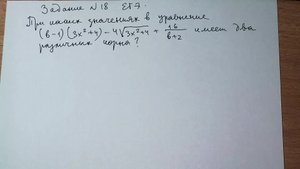 Задание №18 ЕГЭ.
При каких значениях в уравнение
(в-1)(3x²+4) - 4√3x²+4 + 16/в+2 имеет два
различных корня?